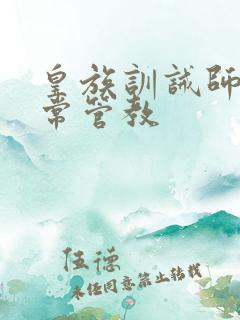 皇族訓誡師
常管教
任德
未经同意禁止转载